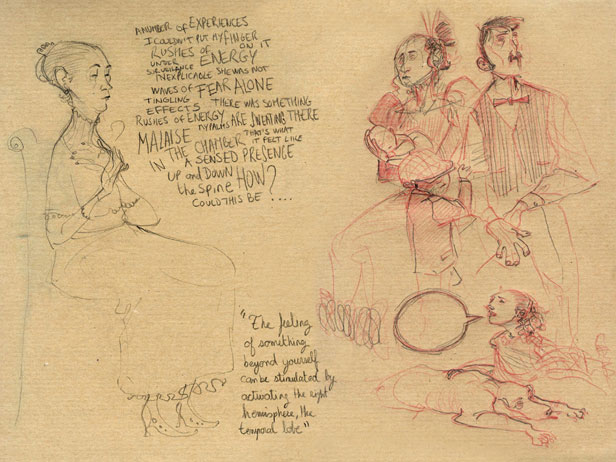 A NUMBER OF EXPERIENCES
I COULDN'T PUT MY FINGER
ON IT
RUSHES OF ENERGY
UNDER
SURVEILLANCE
INEXPLICABLE SHE WAS NOT
WAVES OF FEAR ALONE
TINGLING
EFFECTS THERE WAS SOMETHING
RUSHES OF ENERGY MY PALMS ARE SWEATING THERE
MALAISE THAT'S WHAT
IN THE CHAMBER IT FELT LIKE
A SENSED PRESENCE
UP AND DOWN
the SPINE HOW?
COULD THIS BE ....
"The feeling
of something
beyond yourself
can be stimulated by
activating the right
hemisphere, the
temporal lobe"